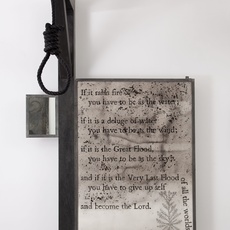 If it rains fire
you have to be as the water;
If it is a deluge of water
you have to be as the wind;
if it is the Great Flood,
you have to be as the sky;
and if it is the Very Last Flood
you have to give up self
and become the Lord.
of all the worlds